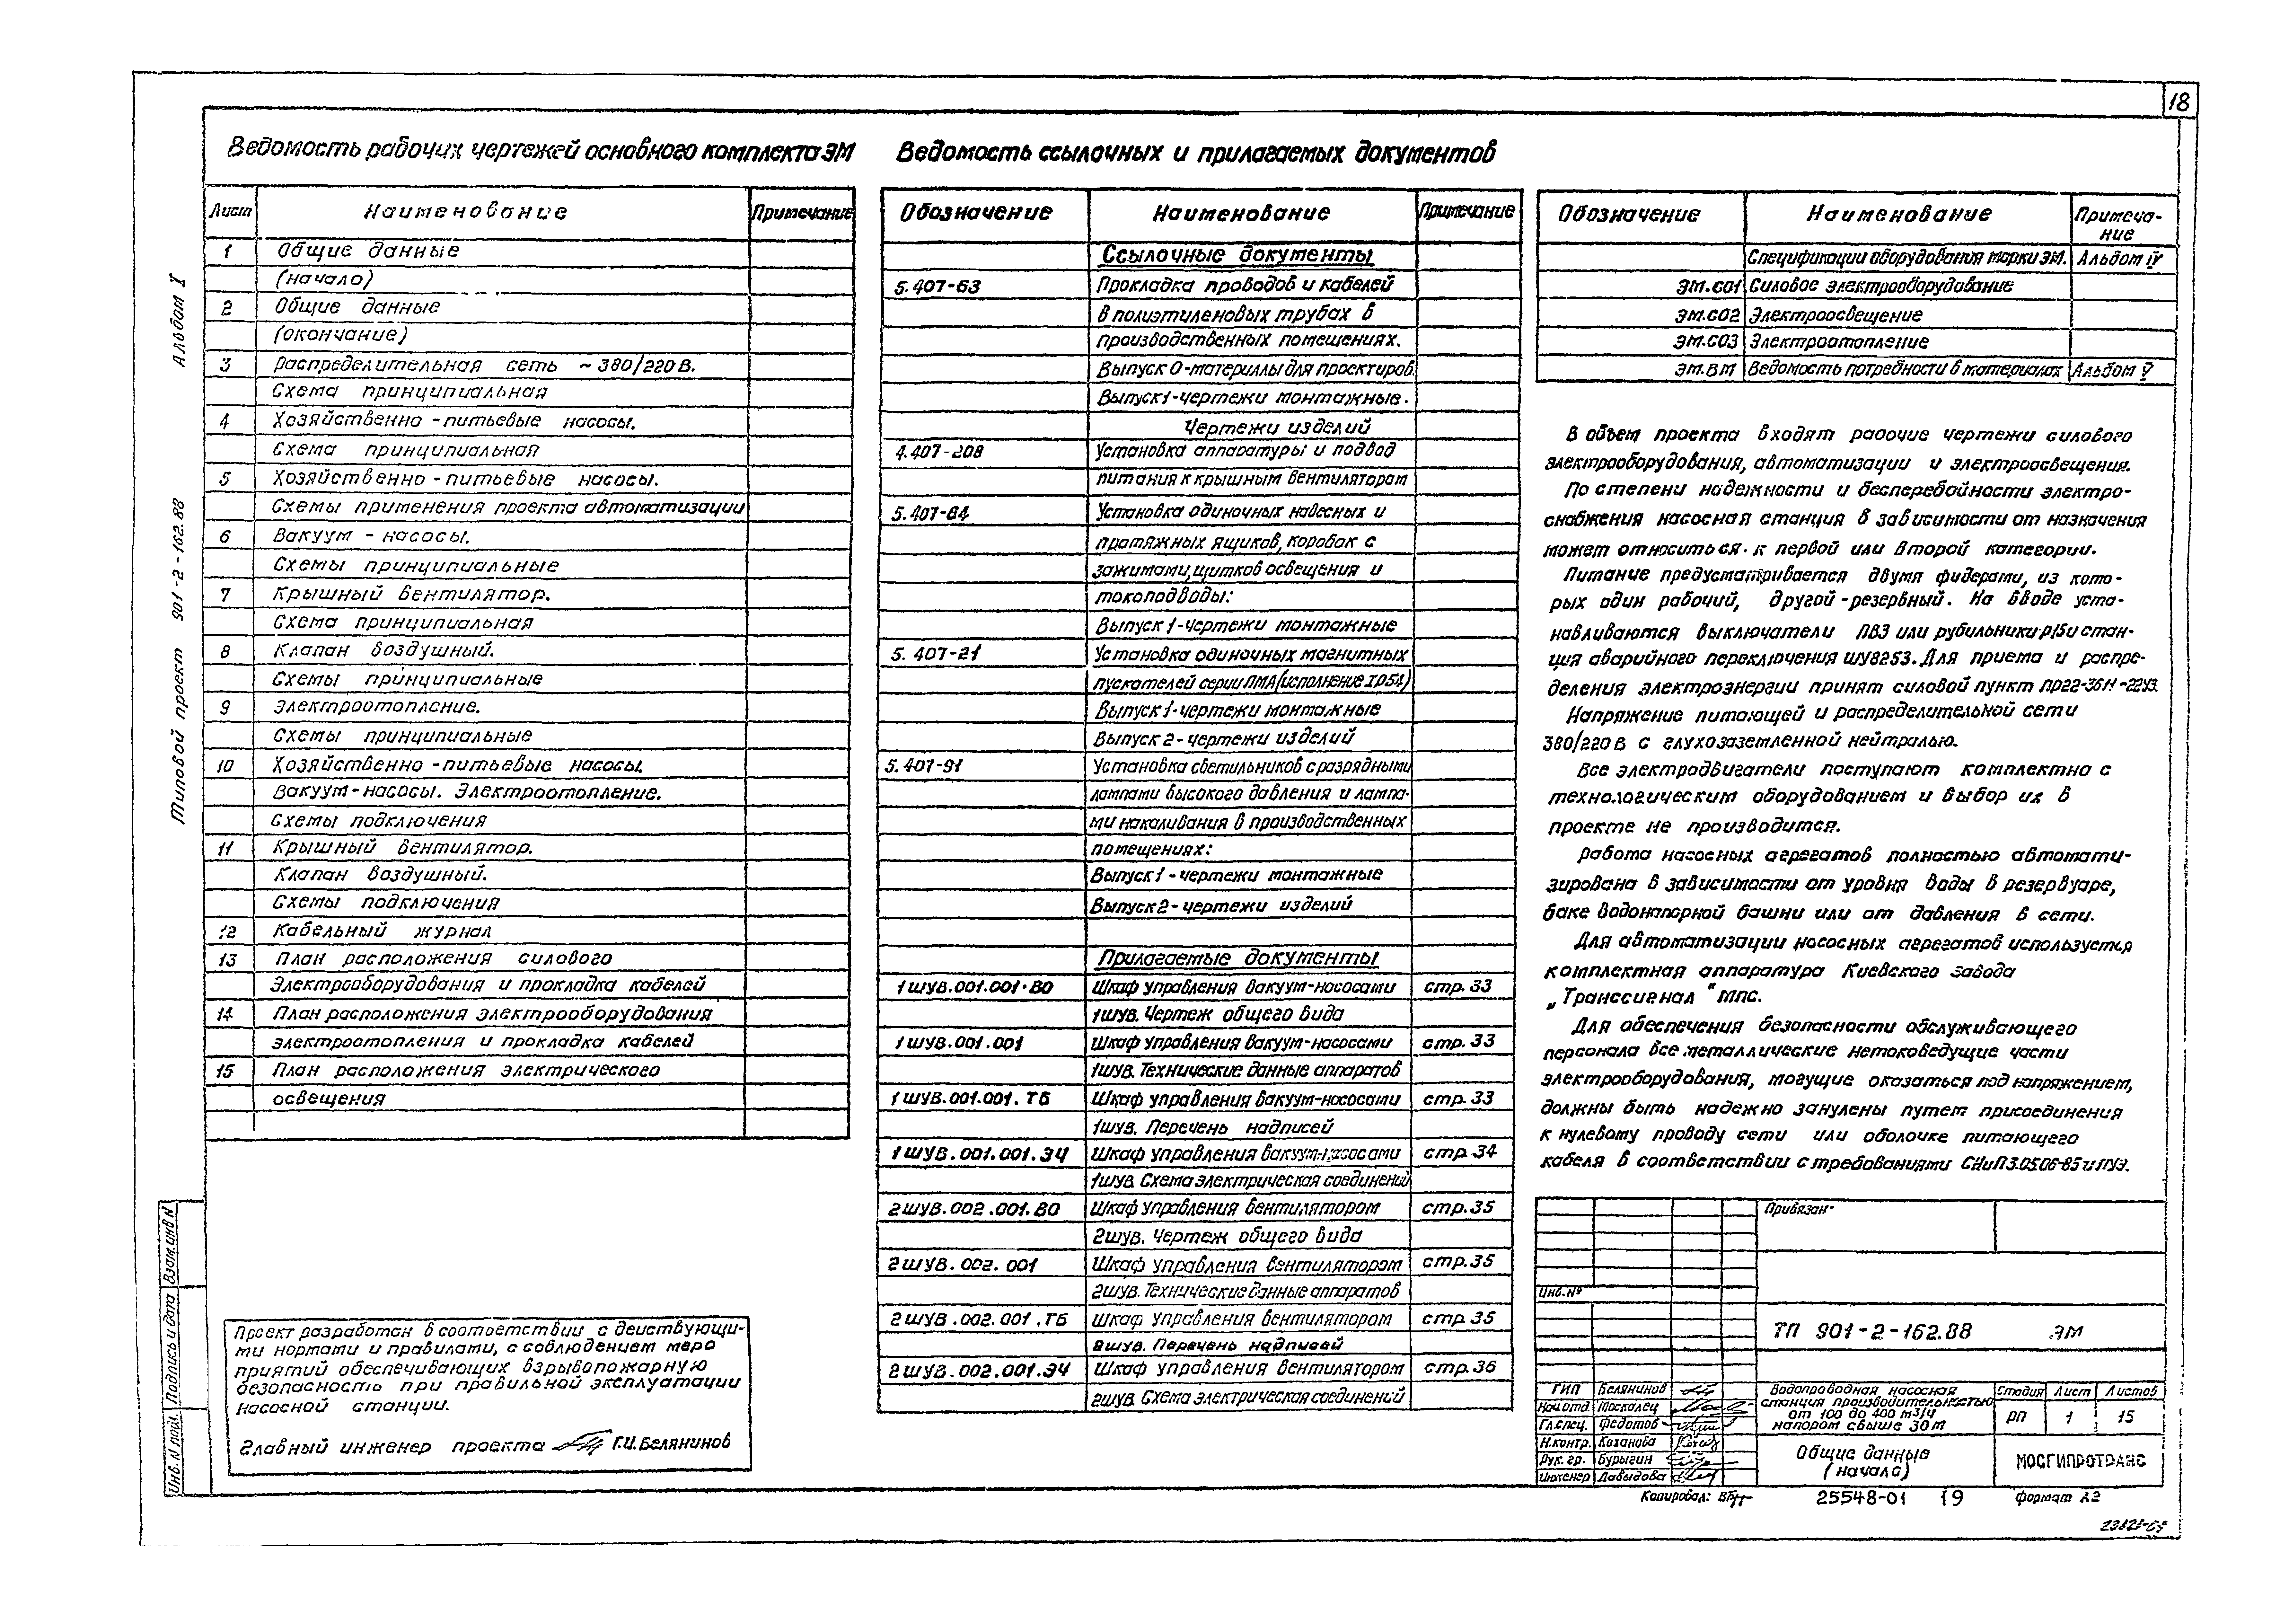 18
Ведомость рабочих чертежей основного комплекта ЭМ
Лист Наименование Примечание
1 Общие данные
(начало)
2 Общие данные
(окончание)
3 Распределительная сеть ~380/220В.
Схема принципиальная
4 Хозяйственно-питьевые насосы.
Схема принципиальная
5 Хозяйственно-питьевые насосы.
Схемы применения проекта автоматизации
6 Вакуум-насосы.
Схемы принципиальные
7 Крышный вентилятор.
Схема принципиальная
8 Клапан воздушный.
Схемы принципиальные
9 Электроотопление.
Схемы принципиальные
10 Хозяйственно-питьевые насосы.
Вакуум-насосы. Электроотопление.
Схемы подключения
11 Крышный вентилятор.
Клапан воздушный.
Схемы подключения
12 Кабельный журнал
13 План расположения силового
Электрооборудования и прокладка кабелей
14 План расположения электрооборудования
электроотопления и прокладка кабелей
15 План расположения электрического
освещения
Проект разработан в соответствии с действующи-
ми нормами и правилами, с соблюдением меро
приятий обеспечивающих взрывопожарную
безопасность при правильной эксплуатации
насосной станции.
Главный инженер проекта Г.И.Белянинов
Ведомость ссылочных и прилагаемых документов
Обозначение Наименование Примечание
Ссылочные документы
5.407-63 Прокладка проводов и кабелей
в полиэтиленовых трубах в
производственных помещениях.
Выпуск 0-материалы для проектиров.
Выпуск 1-чертежи монтажные.
Чертежи изделий
4.407-208 Установка аппаратуры и подвод
питания к крышным вентиляторам
5.407-84 Установка одиночных навесных и
протяжных ящиков, коробок с
зажимами, щитков освещения и
токоподводы:
Выпуск 1-чертежи монтажные
5.407-21 Установка одиночных магнитных
пускателей серии ПМА (исполнение IP54)
Выпуск 1-чертежи монтажные
Выпуск 2-чертежи изделий
5.407-91 Установка светильников с разрядными
лампами высокого давления и лампа-
ми накаливания в производственных
помещениях:
Выпуск 1-чертежи монтажные
Выпуск 2-чертежи изделий
Прилагаемые документы
1ШУВ.001.001.ВО Шкаф управления вакуум-насосами стр.33
1шув. Чертеж общего вида
1ШУВ.001.001 Шкаф управления вакуум-насосами стр.33
1шув. Технические данные аппаратов
1ШУВ.001.001.ТБ Шкаф управления вакуум-насосами стр.33
1шув. Перечень надписей
1ШУВ.001.001.Э4 Шкаф управления вакуум-насосами стр.34
1шув. Схема электрическая соединений
2ШУВ.002.001.ВО Шкаф управления вентилятором стр.35
2шув. Чертеж общего вида
2ШУВ.002.001 Шкаф управления вентилятором стр.35
2шув. Технические данные аппаратов
2ШУВ.002.001.ТБ Шкаф управления вентилятором стр.35
2шув. Перечень надписей
2ШУВ.002.001.Э4 Шкаф управления вентилятором стр.36
2шув. Схема электрическая соединений
Обозначение Наименование Примеча-
ние
Спецификации оборудования марки ЭМ. Альбом IV
ЭМ.СО1 Силовое электрооборудование
ЭМ.СО2 Электроосвещение
ЭМ.СО3 Электроотопление
ЭМ.ВМ Ведомость потребности в материалах Альбом V
В объем проекта входят рабочие чертежи силового
электрооборудования, автоматизации и электроосвещения.
По степени надежности и бесперебойности электро-
снабжения насосная станция в зависимости от назначения
может относиться к первой или второй категории.
Питание предусматривается двумя фидерами, из кото-
рых один рабочий, другой-резервный. На вводе уста-
навливаются выключатели ПВЗ или рубильники Р15 и стан-
ция аварийного переключения ШУ8253. Для приема и распре-
деления электроэнергии принят силовой пункт
Напряжение питающей и распределительной сети
380/220В с глухозаземленной нейтралью.
Все электродвигатели поступают комплектно с
технологическим оборудованием и выбор их в
проекте не производится.
Работа насосных агрегатов полностью автомати-
зирована в зависимости от уровня воды в резервуаре,
баке водонапорной башни или от давления в сети.
Для автоматизации насосных агрегатов используется
комплектная аппаратура Киевского завода
„Транссигнал" МПС.
Для обеспечения безопасности обслуживающего
персонала все металлические нетоковедущие части
электрооборудования, могущие оказаться под напряжением,
должны быть надежно занулены путем присоединения
к нулевому проводу сети или оболочке питающего
кабеля в соответствии с требованиями СНиП 3.05.06-85 и ПУЭ.
Привязан
Инв.№
ТП 901-2-162.88 ЭМ
ГИП Белянинов
Нач.отд. Москалец
Гл.спец. Федотов
Н.контр. Коханова
Рук.гр. Бурыгин
Инженер Давыдова
Водопроводная насосная
станция производительностью
от 100 до 400 м3/ч
напором свыше 30м
Стадия Лист Листов
РП 1 15
Общие данные
(начало)
МОСГИПРОТРАНС
Копировал:
25548-01 19
Формат А2
Альбом I
Типовой проект 901-2-162.88
Взам.инв №
Подпись и дата
Инв. № подл.